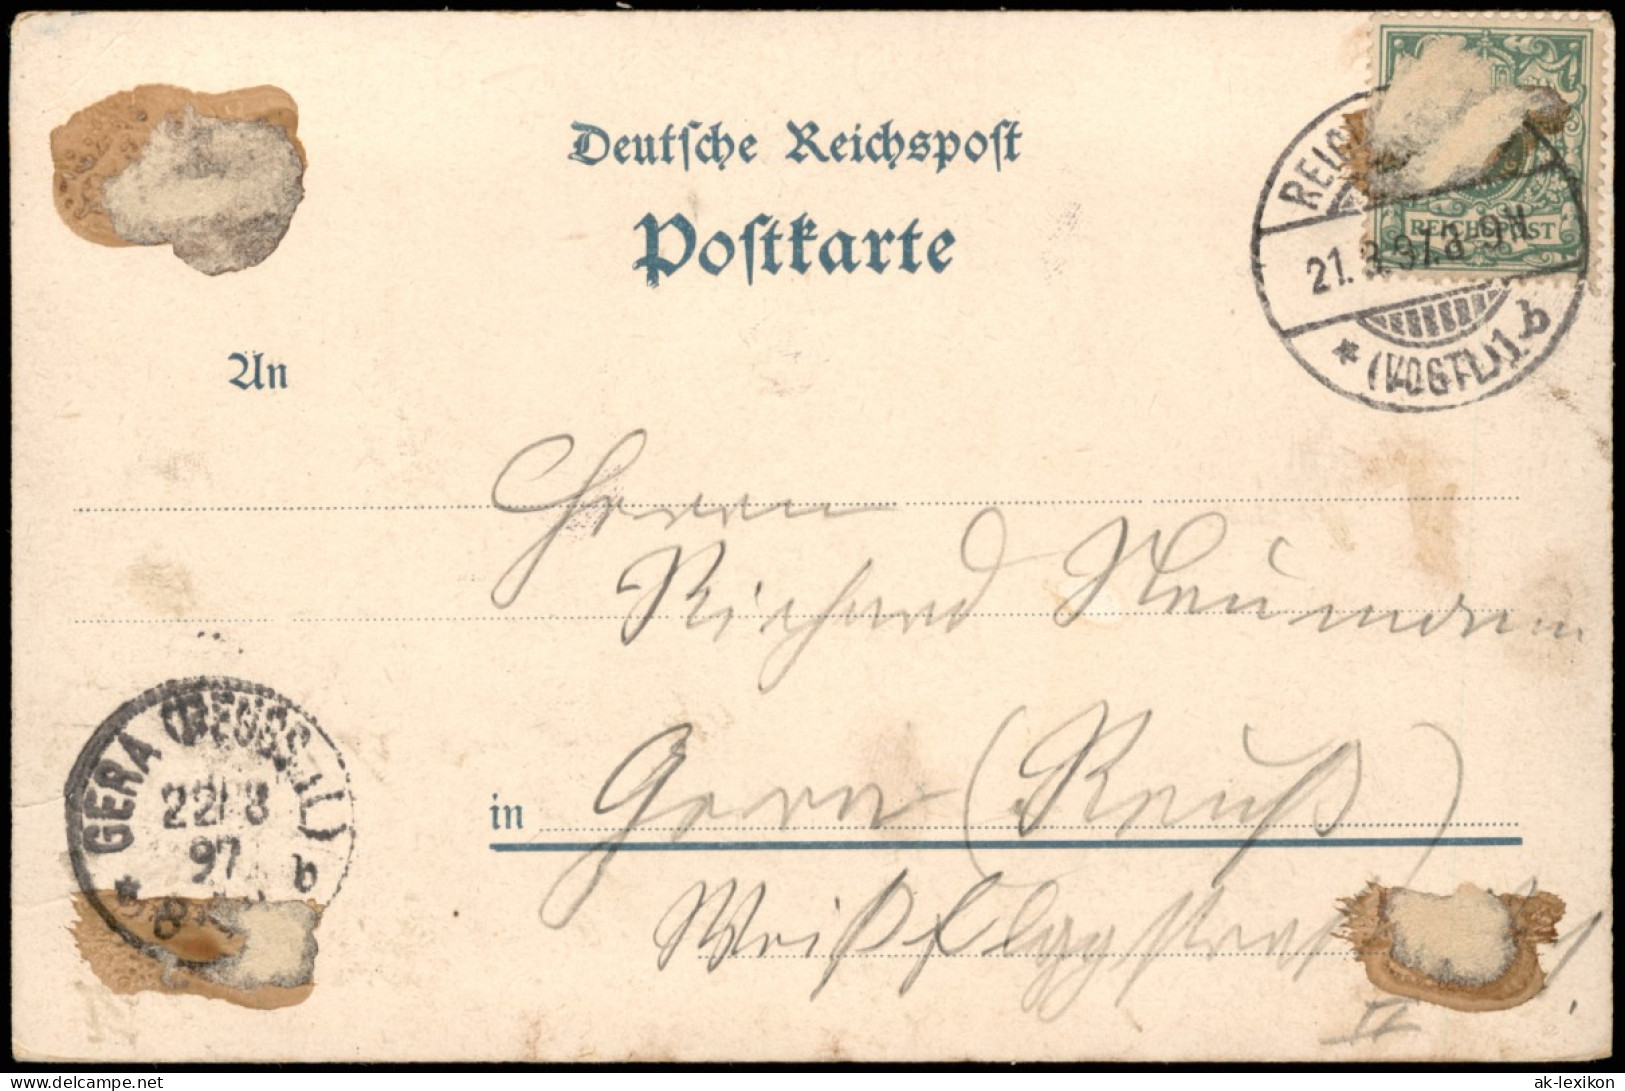 Deutsche Reichspost
Postkarte
REICHSPOST
21. 8. 97. 8-9N
(VOGTL) 1. b
An
Herrn
Richard Neumann
in Gera (Reuß)
GERA (REUSS J.L.)
22 8
97
b
II
delcampe.net
ak-lexikon